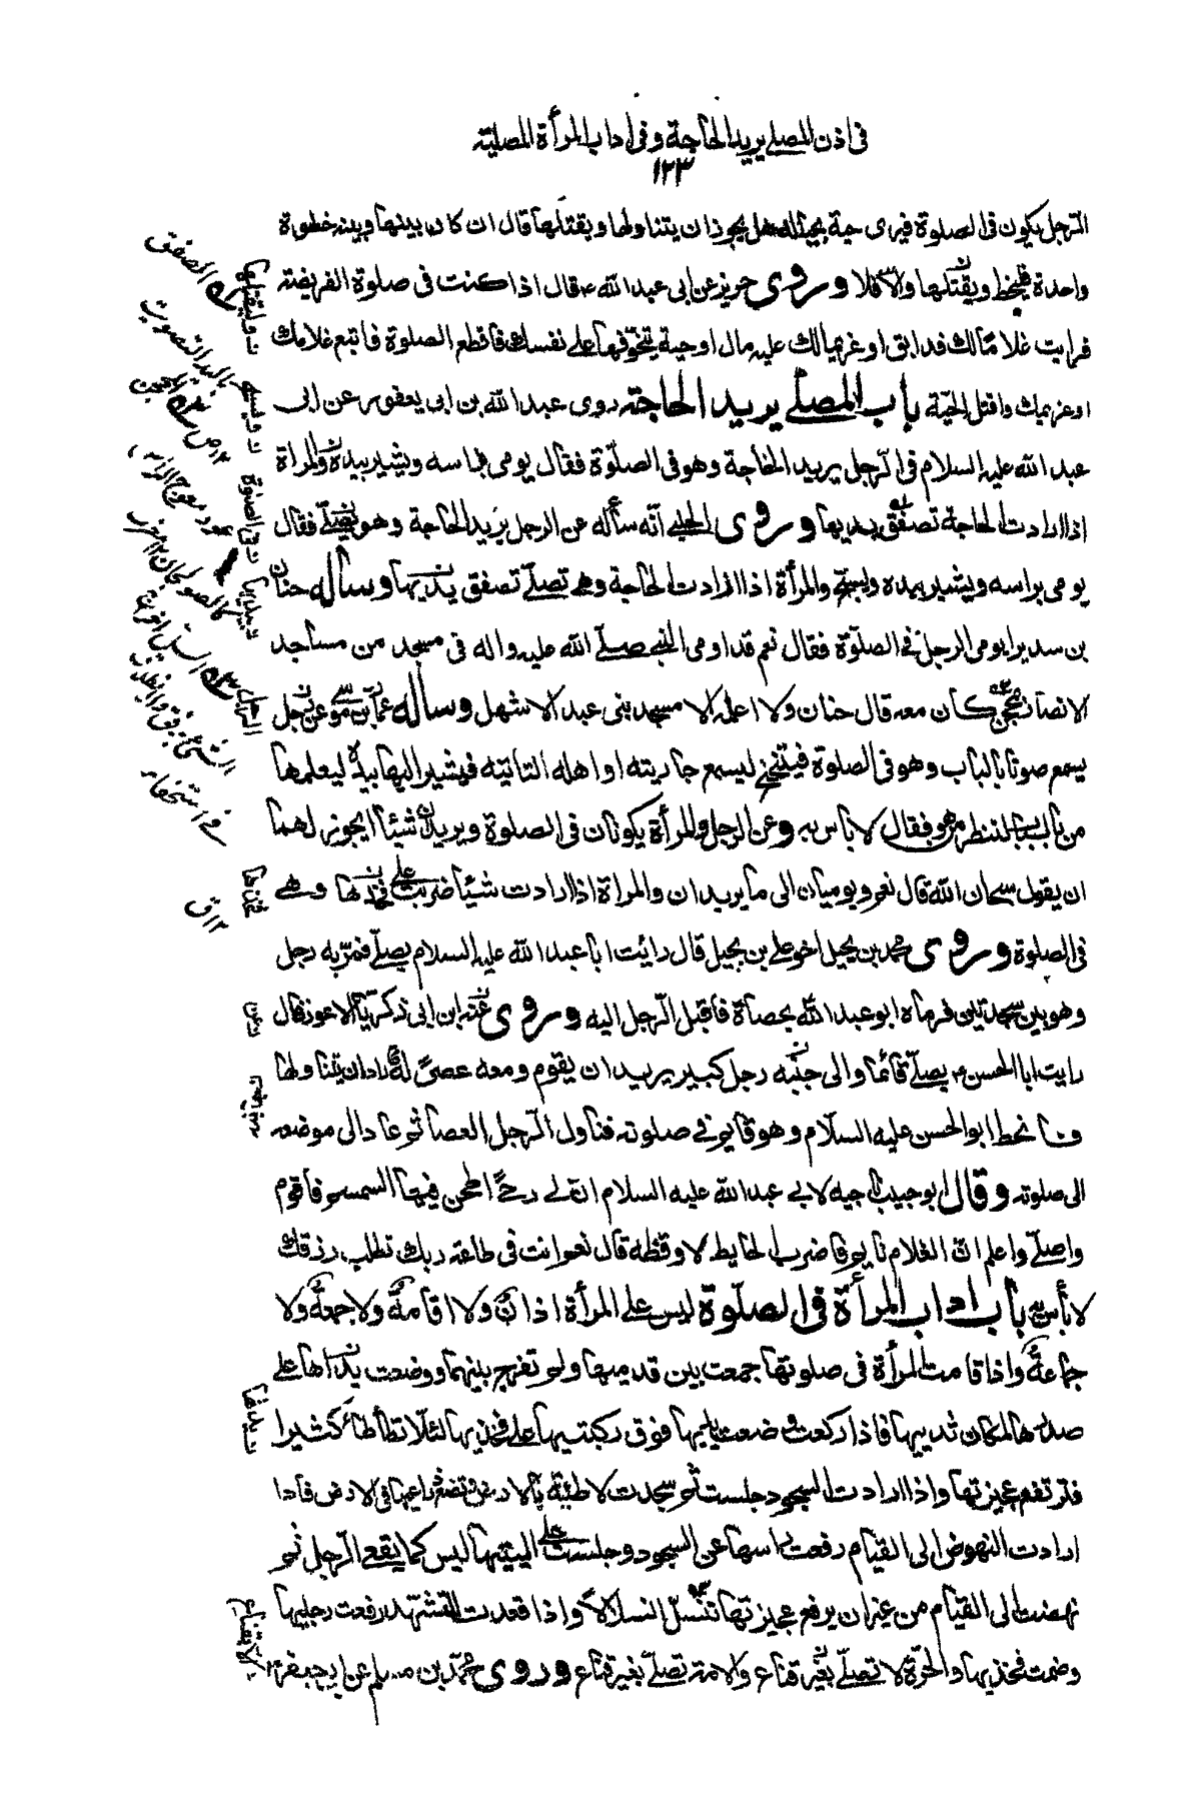 فى اذن المصلى يريد الحاجة وفى اداب المرأة المصلية
١٢٣
الرّجل يكون فى الصلوة فيرى حية بحياله هل يجوز ان يتناولها ويقتلها قال ان كان بينها وبينه خطوة
واحدة فليخط ويقتلها والا فلا وروى حريز عن ابى عبد الله ع قال اذا كنت فى صلوة الفريضة
فرايت غلامًا لك قد ابق او غريمًا لك عليه مال او حية تتخوّفها على نفسك فاقطع الصلوة فاتبع غلامك
او غريمك واقتل الحيّة باب المصلى يريد الحاجة روى عبد الله بن ابى يعفور عن ابى
عبد الله عليه السلام فى الرّجل يريد الحاجة وهو فى الصلّوة فقال يومى براسه ويشير بيده والمراة
اذا ارادت الحاجة تصفق بيديها وروى الحلبى انّه سأله عن الرجل يريد الحاجة وهو يصلّى فقال
يومى براسه ويشير بيده ويسبّح والمرأة اذا ارادت الحاجة وهى تصلّى تصفق بيديها وساله حنان
بن سدير ايومى الرجل فى الصلّوة فقال نعم قد اومى النبى صلّى الله عليه واله فى مسجد من مساجد
الانصار بمحجن كان معه قال حنان ولا اعلمه الا مسجد بنى عبد الاشهل وساله عمار بن موسى عن رجل
يسمع صوتا بالباب وهو فى الصلوة فيتنحنح ليسمع جاريته او اهله التاتيه فيشير اليها بيده ليعلمها
من بالباب لتنظر من هو فقال لا باس به وعن الرجل والمرأة يكونان فى الصلوة ويريدان شيئًا ايجوز لهما
ان يقول سبحان الله قال نعم ويوميان الى ما يريدان والمراة اذا ارادت شيئا ضربت على فخذها وهى
فى الصلوة وروى محمد بن بجيل اخو على بن بجيل قال رائيت ابا عبد الله عليه السلام يصلّى فمرّ به رجل
وهو بين سجدتين فرماه ابو عبد الله بحصاة فاقبل الرّجل اليه وروى عنه ابن ابى زكريّا الاعور قال
رايت ابا الحسن ع يصلّى قائمًا والى جنبه رجل كبير يريد ان يقوم ومعه عصًى له فاراد ان يتناولها
فانحط ابو الحسن عليه السلام وهو قايم فى صلوته فناول الرّجل العصا ثم عاد الى موضعه
الى صلوته وقال ابو حبيب ناجيه لابى عبد الله عليه السلام ان لى رحًى اطحن فيها السمسم فاقوم
واصلّى واعلم ان الغلام نايم فاضرب الحايط لاوقظه قال نعم انت فى طاعة ربك تطلب رزقك
لا بأس به باب اداب المرأة فى الصلّوة ليس على المرأة اذان ولا اقامة ولا جمعة ولا
جماعة واذا قامت المرأة فى صلوتها جمعت بين قدميها ولم تفرج بينهما ووضعت يديها على
صدرها لمكان ثدييها فاذا ركعت وضعت يديها فوق ركبتيها على فخذيها لئلّا تطأطأ كثيرا
فترتفع عجيزتها واذا ارادت السجود جلست ثم سجدت لاطئة بالارض وتضع ذراعيها فى الارض فاذا
ارادت النهوض الى القيام رفعت راسها عن السجود وجلست على اليتيها ليس كما يقعى الرّجل ثم
نهضت الى القيام من غير ان يرفع عجيزتها تنسلّ انسلالًا واذا قعدت للتشهد رفعت رجليها
وضمت فخذيها والحرّة لا تصلّى بغير قناع والامة تصلّى بغير قناع وروى محمّد بن مسلم عن ابى جعفر